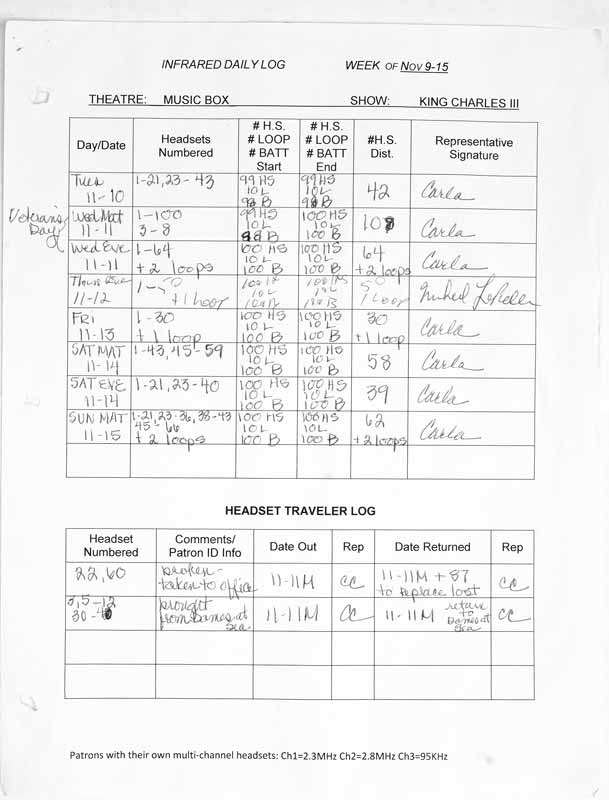 INFRARED DAILY LOG WEEK OF NOV 9-15
THEATRE: MUSIC BOX SHOW: KING CHARLES III
Day/Date Headsets Numbered # H.S. # LOOP # BATT Start # H.S. # LOOP # BATT End #H.S. Dist. Representative Signature
Tues 11-10 1-21, 23-43 99 HS 10 L 98 B 99 HS 10 L 98 B 42 Carla
Veteran's Day
Wed Mat 11-11 1-100 3-8 99 HS 10 L 98 B 100 HS 10 L 100 B 108 Carla
Wed Eve 11-11 1-64 +2 loops 100 HS 10 L 100 B 100 HS 10 L 100 B 64 +2 loops Carla
Thurs Eve 11-12 1-50 +1 Loop 100 10 L 100 B 100 100 B 50 1 Loop
FRI 11-13 1-30 +1 loop 100 HS 10 L 100 B 100 HS 10 L 100 B 30 +1 loop Carla
SAT MAT 11-14 1-43, 45-59 100 HS 10 L 100 B 100 HS 10 L 100 B 58 Carla
SAT EVE 11-14 1-21, 23-40 100 HS 10 L 100 B 100 HS 10 L 100 B 39 Carla
SUN MAT 11-15 1-21, 23-36, 38-43 45-66 +2 loops 100 HS 10 L 100 B 100 HS 10 L 100 B 62 +2 loops Carla
HEADSET TRAVELER LOG
Headset Numbered Comments/ Patron ID Info Date Out Rep Date Returned Rep
22, 60 broken - taken to office 11-11M CC 11-11M + 87 to replace lost CC
3, 5-12 30-40 brought from Dames at Sea 11-11M CC 11-11M return to Dames at Sea CC
Patrons with their own multi-channel headsets: Ch1=2.3MHz Ch2=2.8MHz Ch3=95KHz